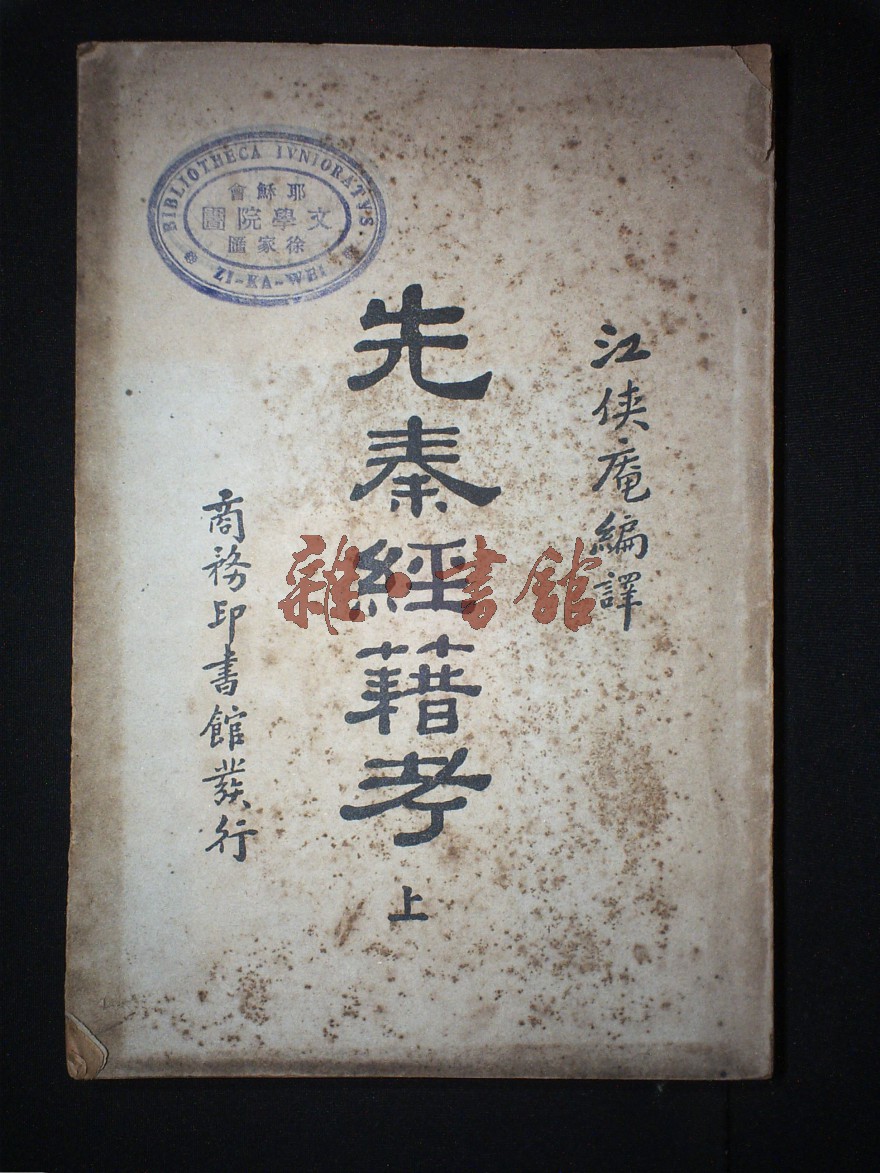 江俠庵編譯
先秦經籍考
上
商務印書館發行
BIBLIOTHECA IVNIORATVS
耶穌會
文學院圖
徐家匯
ZI-KA-WEI
雜·書館